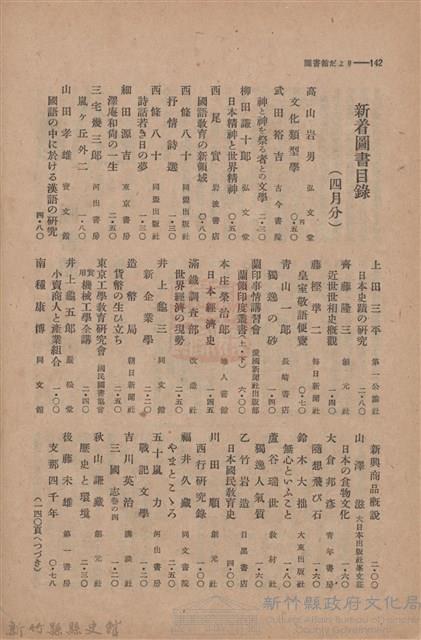 圖書館だより――142
新着圖書目錄
(四月分)
高山岩男 弘文堂
文化類型學 円〇・五〇
武田祐吉 古今書院
神と神を祭る者との文學 二・三〇
柳田謙十郎 弘文堂
日本精神と世界精神
西尾實 岩波書店
國語教育の新領域 〇・五〇
西條八十 同盟出版社
抒情詩選 一・三〇
西條八十 同盟出版社
詩話若き日の夢 一・三〇
細田源吉 東京書房
澤庵和尚の一生 二・五〇
三宅幾三郎 河出書房
嵐ヶ丘外二 一・八〇
山田孝雄 寶文館
國語の中に於ける漢語の研究
四・八〇
上田三平 第一公論社
日本史蹟の研究 二・八〇
齊藤隆三 創元社
近世世相史概觀 一・四〇
藤樫準二 每日新聞社
皇室敬語便覽 〇・七〇
青山一郎 長崎書店
獨逸の砂 一・四〇
蘭印事情講習會 愛國新聞社出版部
蘭領印度叢書(上・下) 六・〇〇
本庄榮治郎
日本經濟史 一・四五
滿鐵調查部 改造社
世界經濟の現勢 一・五〇
井上龜三 同文館
新企業學 二・二〇
造幣局 朝日新聞社
貨幣の生ひ立ち 二・五〇
東京工學教育研究會 國民圖書協會
實用機械工學全講 三・五〇
井上龜五郎 嚴松堂
小賣商人と產業組合 一・〇〇
南種康博 同文館
新興商品槪說 二・〇〇
山澤滋 大日本出版社峯文莊
日本の食物文化 一・六〇
大倉邦彥 青年書房
隨想飛び石 一・六〇
鈴木大拙 大東出版社
無心といふこと 一・八〇
蘆谷瑞世 教材社
獨逸人氣質 一・六〇
乙竹岩造 目黑書店
日本國民教育史 一・六〇
川田順 創元社
西行研究錄 一・五〇
福井久藏 同文書院
やまとこゝろ 二・五〇
五十嵐力 河出書房
戰記文學 一・二〇
吉川英治 講談社
三國志卷の四 一・二〇
秋山謙藏 創元社
歷史と環境 二・三〇
後藤末雄 第一書房
支那四千年 〇・七八
(一四〇頁へつづき)
新竹縣縣史館
新竹縣政府文化局
Cultural Affairs Bureau of Hsinchu County Government